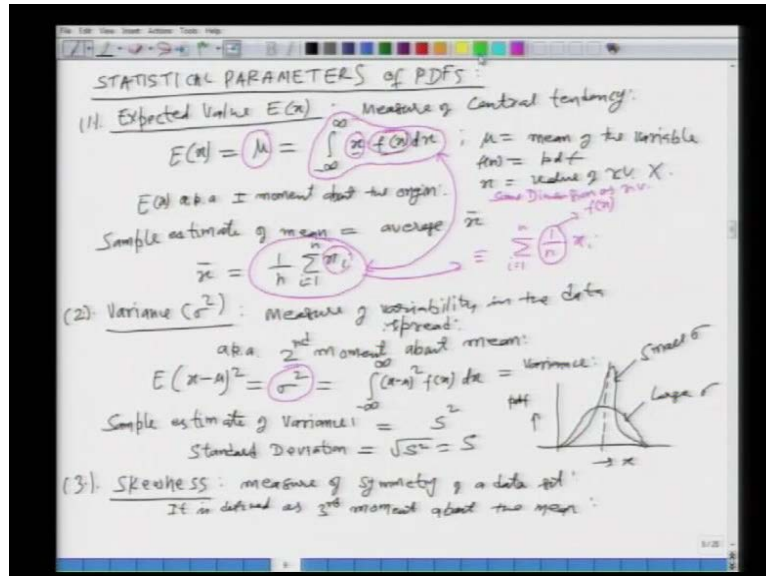 File Edit View Insert Actions Tools Help
STATISTICAL PARAMETERS of PDFS :
(1). Expected Value E(x) : Measure of Central tendency:
E(x) = μ = ∫_{-∞}^{∞} x f(x) dx ; μ = mean of the variable
f(x) = pdf
x = value of r.v. X.
Same Dimension as r.v.
E(x) a.k.a I moment about the origin:
Sample estimate of mean = average x̄
x̄ = 1/n ∑_{i=1}^{n} x_i ≡ ∑_{i=1}^{n} (1/n) x_i
f(x)
(2). Variance (σ²) : Measure of variability in the data
spread:
a.k.a. 2nd moment about mean:
E(x-μ)² = σ² = ∫_{-∞}^{∞} (x-μ)² f(x) dx = Variance:
Small σ
Large σ
pdf
↑
→ x
Sample estimate of Variance: = S²
Standard Deviation = √S² = S
(3.). Skewness : measure of Symmetry of a data set:
It is defined as 3rd moment about the mean :